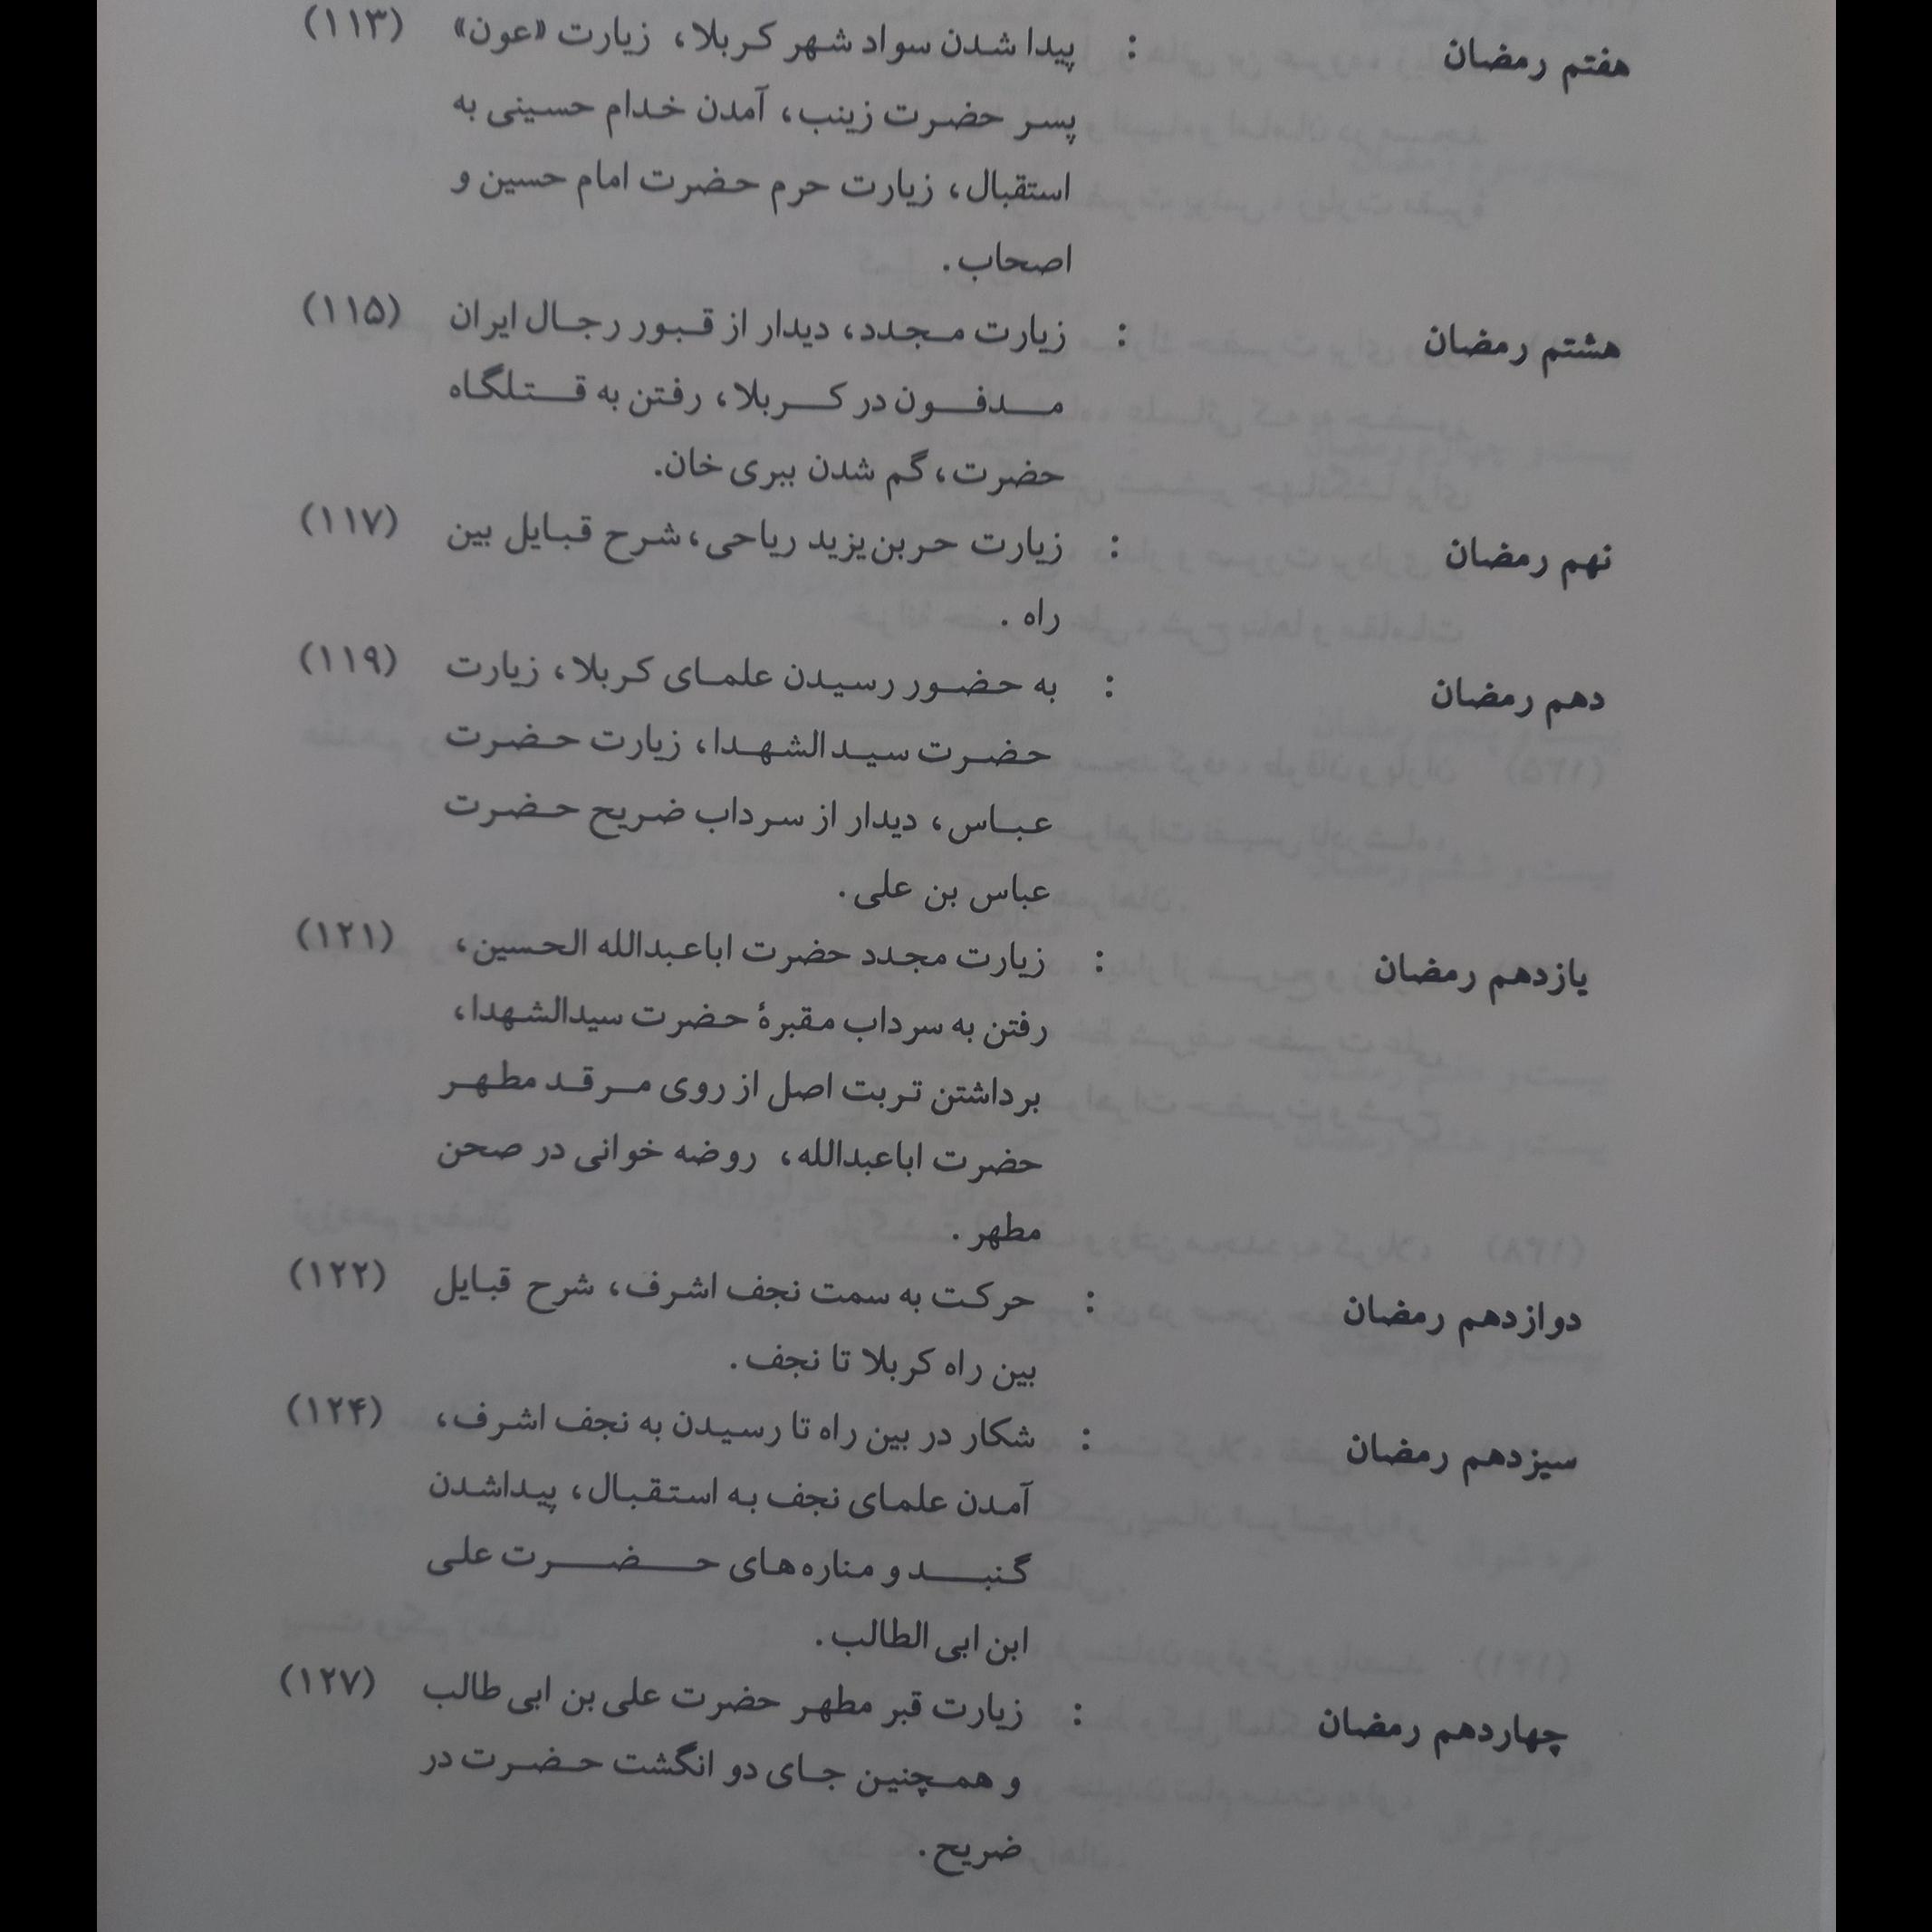 هفتم رمضان : پیدا شدن سواد شهر کربلا، زیارت «عون» (۱۱۳)
پسر حضرت زینب، آمدن خدام حسینی به
استقبال، زیارت حرم حضرت امام حسین و
اصحاب.
هشتم رمضان : زیارت مجدد، دیدار از قبور رجال ایران (۱۱۵)
مدفون در کربلا، رفتن به قتلگاه
حضرت، گم شدن ببری خان.
نهم رمضان : زیارت حربن یزید ریاحی، شرح قبایل بین (۱۱۷)
راه .
دهم رمضان : به حضور رسیدن علمای کربلا، زیارت (۱۱۹)
حضرت سیدالشهدا، زیارت حضرت
عباس، دیدار از سرداب ضریح حضرت
عباس بن علی.
یازدهم رمضان : زیارت مجدد حضرت اباعبدالله الحسین، (۱۲۱)
رفتن به سرداب مقبرهٔ حضرت سیدالشهدا،
برداشتن تربت اصل از روی مرقد مطهر
حضرت اباعبدالله، روضه خوانی در صحن
مطهر .
دوازدهم رمضان : حرکت به سمت نجف اشرف، شرح قبایل (۱۲۲)
بین راه کربلا تا نجف.
سیزدهم رمضان : شکار در بین راه تا رسیدن به نجف اشرف، (۱۲۴)
آمدن علمای نجف به استقبال، پیداشدن
گنبد و مناره‌های حضرت علی
ابن ابی الطالب.
چهاردهم رمضان : زیارت قبر مطهر حضرت علی بن ابی طالب (۱۲۷)
و همچنین جای دو انگشت حضرت در
ضریح.